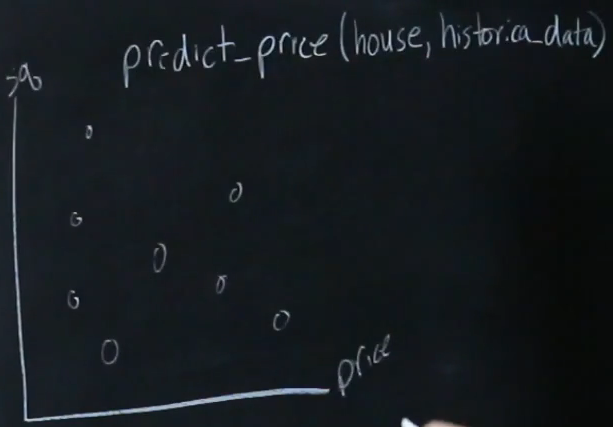 predict_price(house, historica_data)
price